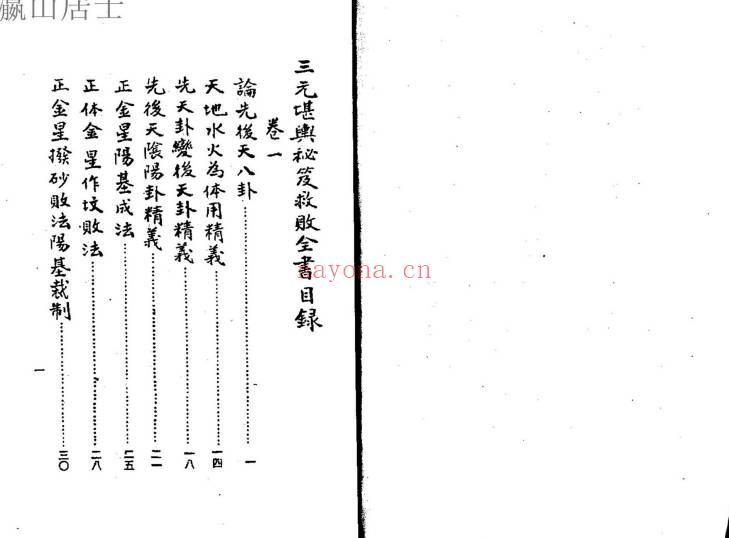 瀛山居士
三元堪輿祕笈救敗全書目録
卷一
論先後天八卦……一
天地水火為体用精義……一四
先天卦變後天卦精義……一八
先後天陰陽卦精義……二一
正金星陽基成法……二五
正体金星作坟敗法……二八
正金星撥砂敗法陽基裁制……三〇
一
nayona.cn